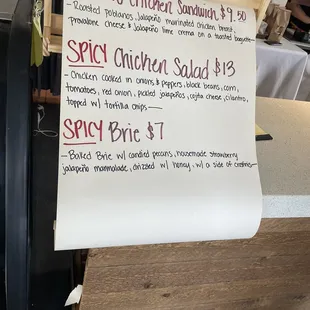 Chicken Sandwich $9.50
- Roasted poblanos, jalapeño marinated chicken breast,
provalone cheese & jalapeño lime crema on a toasted baguette-
SPICY Chicken Salad $13
- Chicken cooked in onions & peppers, black beans, corn,
tomatoes, red onion, pickled jalapeños, cojita cheese, cilantro,
topped w/ tortilla chips
SPICY Brie $7
- Baked Brie w/ candied pecans, housemade strawberry
jalapeño marmalade, drizzled w/ honey, w/ a side of crostinis-